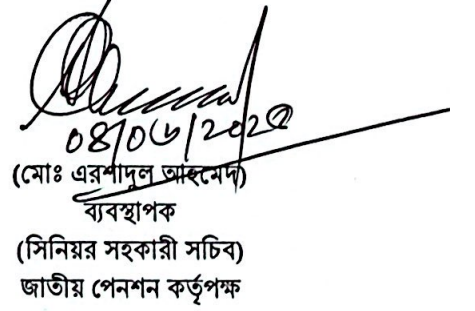 ০৪/০৬/২০২৫
(মোঃ এরশাদুল আহমেদ)
ব্যবস্থাপক
(সিনিয়র সহকারী সচিব)
জাতীয় পেনশন কর্তৃপক্ষ